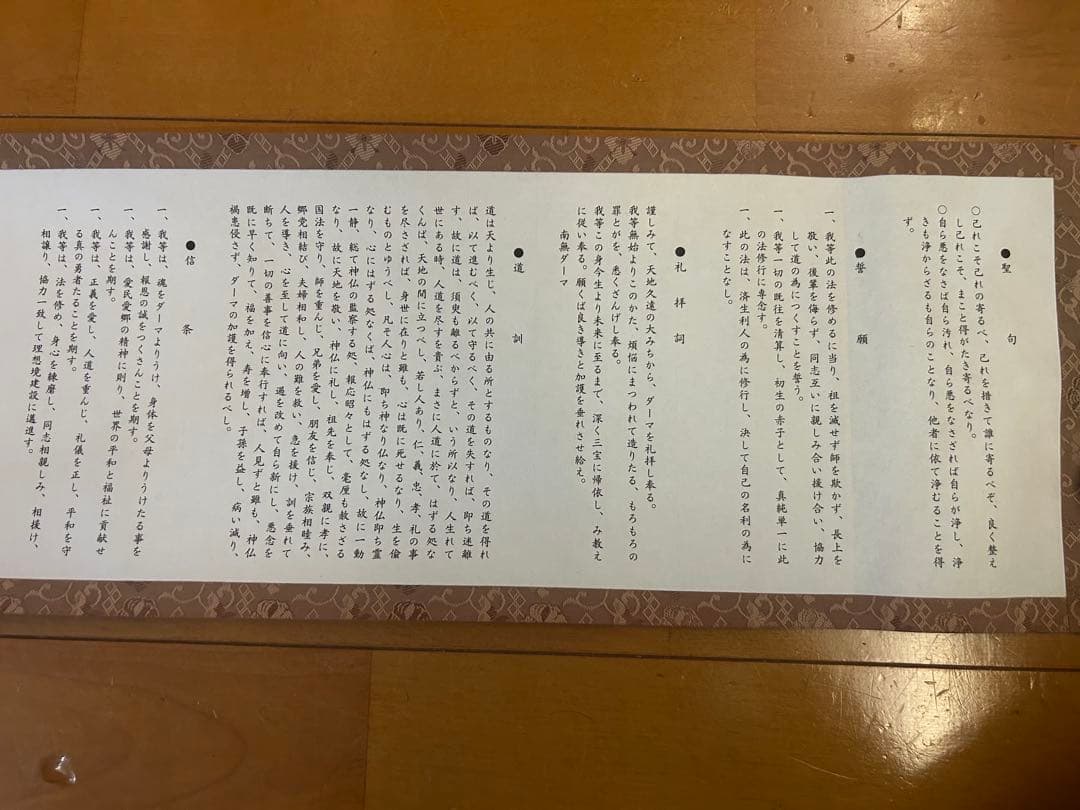 ●聖句
○己れこそ己れの寄るべ、己れを措きて誰に寄るべぞ、良く整え
し己れこそ、まこと得がたき寄るべなり。
○自ら悪をなさば自ら汚れ、自ら悪をなさざれば自らが浄し、浄
きも浄からざるも自らのことなり、他者に依て浄むることを得
ず。
●誓願
一、我等此の法を修めるに当り、祖を滅せず師を欺かず、長上を
敬い、後輩を侮らず、同志互いに親しみ合い援け合い、協力
して道の為につくすことを誓う。
一、我等一切の既往を清算し、初生の赤子として、真純単一に此
の法修行に専念す。
一、此の法は、済生利人の為に修行し、決して自己の名利の為に
なすことなし。
●礼拝詞
謹しみて、天地久遠の大みちから、ダーマを礼拝し奉る。
我等無始よりこのかた、煩悩にまつわれて造りたる、もろもろの
罪とがを、悉くざんげし奉る。
我等この身今生より未来に至るまで、深く三宝に帰依し、み教え
に従い奉る。願くば良き導きと加護を垂れさせ給え。
南無ダーマ
●道訓
道は天より生じ、人の共に由る所とするものなり、その道を得れ
ば、以て進むべく、以て守るべく、その道を失すれば、即ち迷離
す、故に道は、須臾も離るべからずと、いう所以なり、人生れて
世にある時、人道を尽すを貴ぶ、まさに人道に於て、はずる処な
くんば、天地の間に立つべし、若し人あり、仁、義、忠、孝、礼の事
を尽さざれば、身世に在りと雖も、心は既に死せるなり、生を偸
むものとゆうべし、凡そ人心は、即ち神なり仏なり、神仏即ち霊
なり、心にはずる処なくば、神仏にもはずる処なし、故に一動
一静、総て神仏の監察する処、報応昭々として、毫厘も赦さざる
なり、故に天地を敬い、神仏に礼し、祖先を奉じ、双親に孝に、
国法を守り、師を重んじ、兄弟を愛し、朋友を信じ、宗族相睦み、
郷党相結び、夫婦相和し、人の難を救い、急を援け、訓を垂れて
人を導き、心を至して道に向い、過を改めて自ら新にし、悪念を
断ちて、一切の善事を信心に奉行すれば、人見ずと雖も、神仏
既に早く知りて、福を加え、寿を増し、子孫を益し、病い減り、
禍患侵さず、ダーマの加護を得られるべし。
●信条
一、我等は、魂をダーマよりうけ、身体を父母よりうけたる事を
感謝し、報恩の誠をつくさんことを期す。
一、我等は、愛民愛郷の精神に則り、世界の平和と福祉に貢献せ
んことを期す。
一、我等は、正義を愛し、人道を重んじ、礼儀を正し、平和を守
る真の勇者たることを期す。
一、我等は、法を修め、身心を練磨し、同志相親しみ、相援け、
相譲り、協力一致して理想境建設に邁進す。